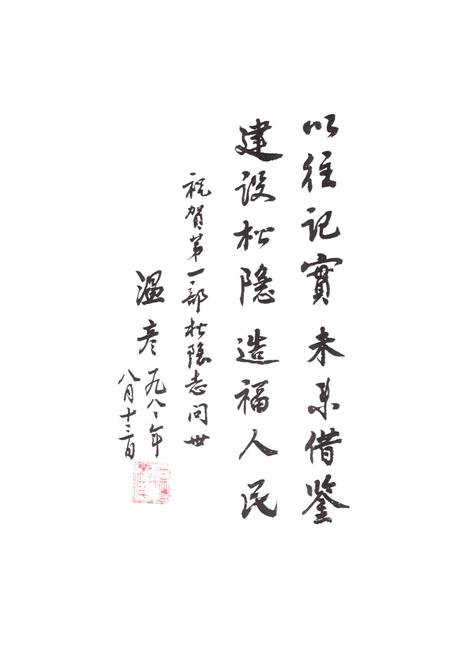 以往记實未来借鉴
建设松隐造福人民
祝贺第一部松隐志问世
温彦
一九八八年
八月十三日